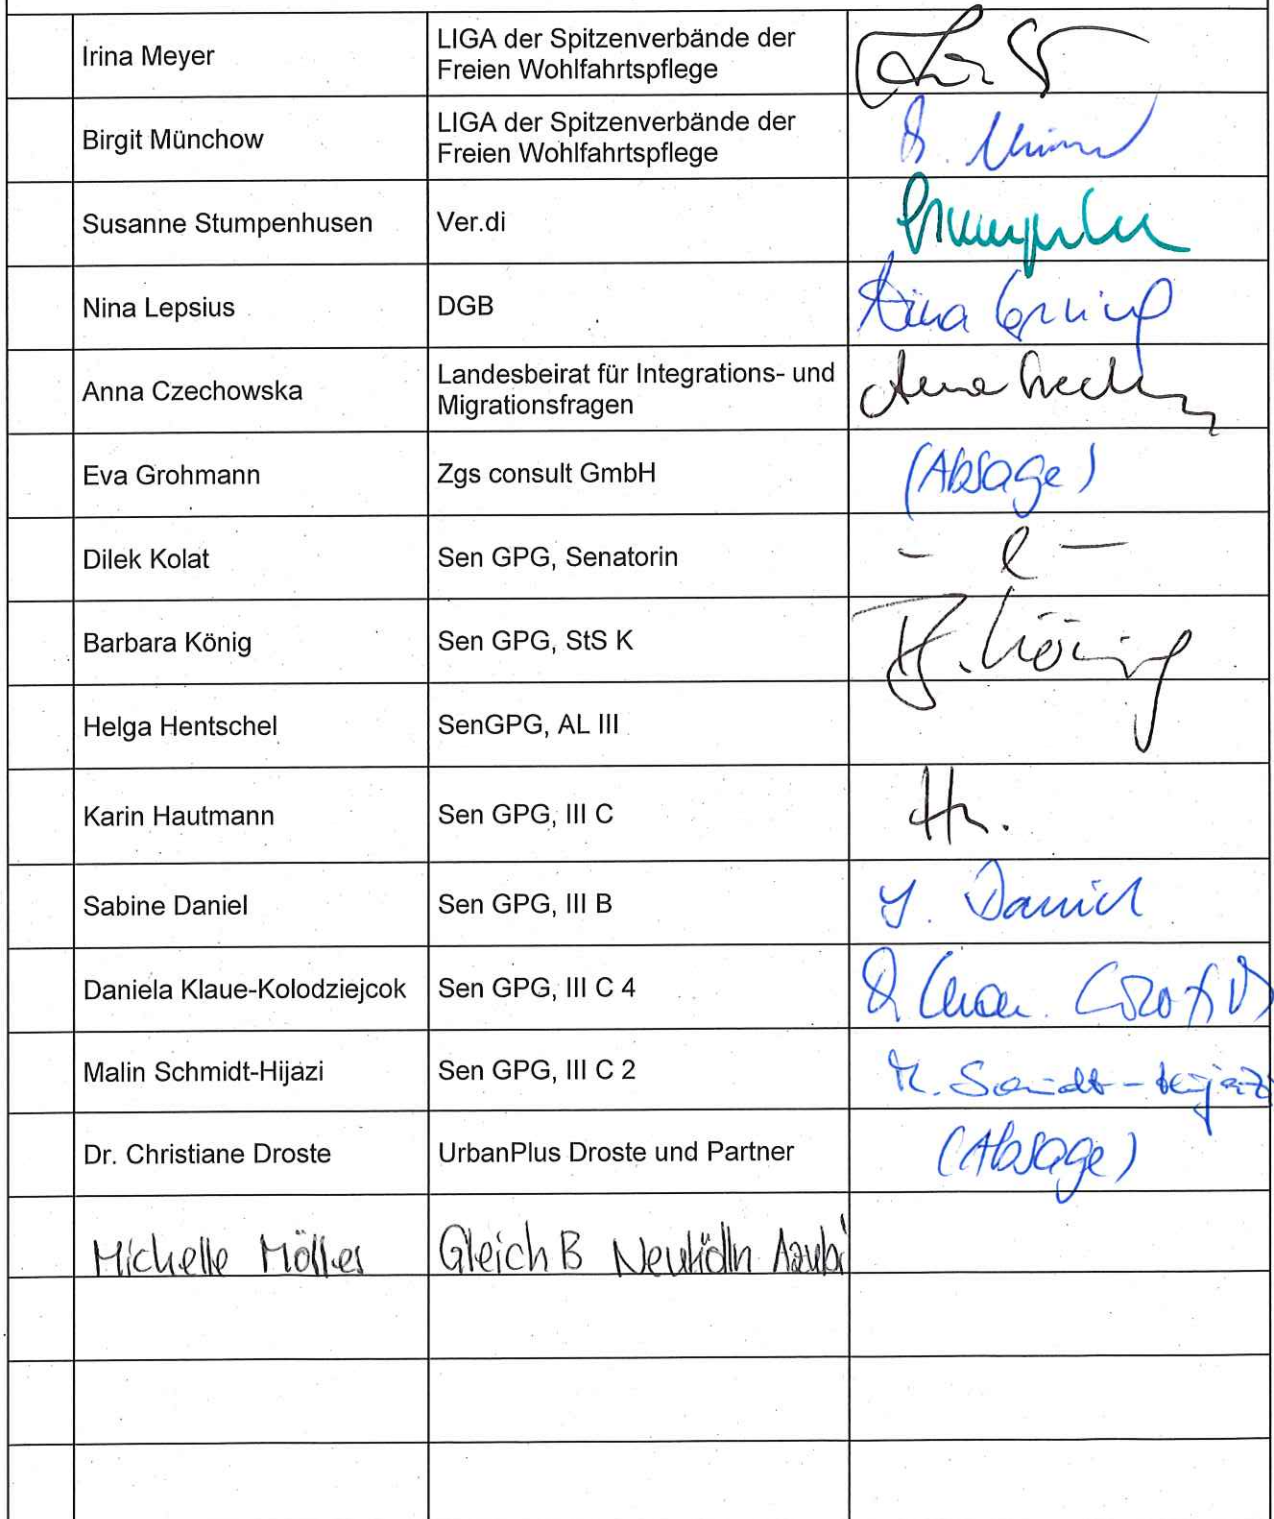 Irina Meyer
LIGA der Spitzenverbände der
Freien Wohlfahrtspflege
Birgit Münchow
LIGA der Spitzenverbände der
Freien Wohlfahrtspflege
Susanne Stumpenhusen
Ver.di
Nina Lepsius
DGB
Nina
Anna Czechowska
Landesbeirat für Integrations- und
Migrationsfragen
Eva Grohmann
Zgs consult GmbH
(Absage)
Dilek Kolat
Sen GPG, Senatorin
Barbara König
Sen GPG, StS K
B. König
Helga Hentschel
SenGPG, AL III
Karin Hautmann
Sen GPG, III C
Sabine Daniel
Sen GPG, III B
S. Daniel
Daniela Klaue-Kolodziejcok
Sen GPG, III C 4
Malin Schmidt-Hijazi
Sen GPG, III C 2
M. Schmidt-Hijazi
Dr. Christiane Droste
UrbanPlus Droste und Partner
(Absage)
Michelle Gleich B Neukölln Azubi